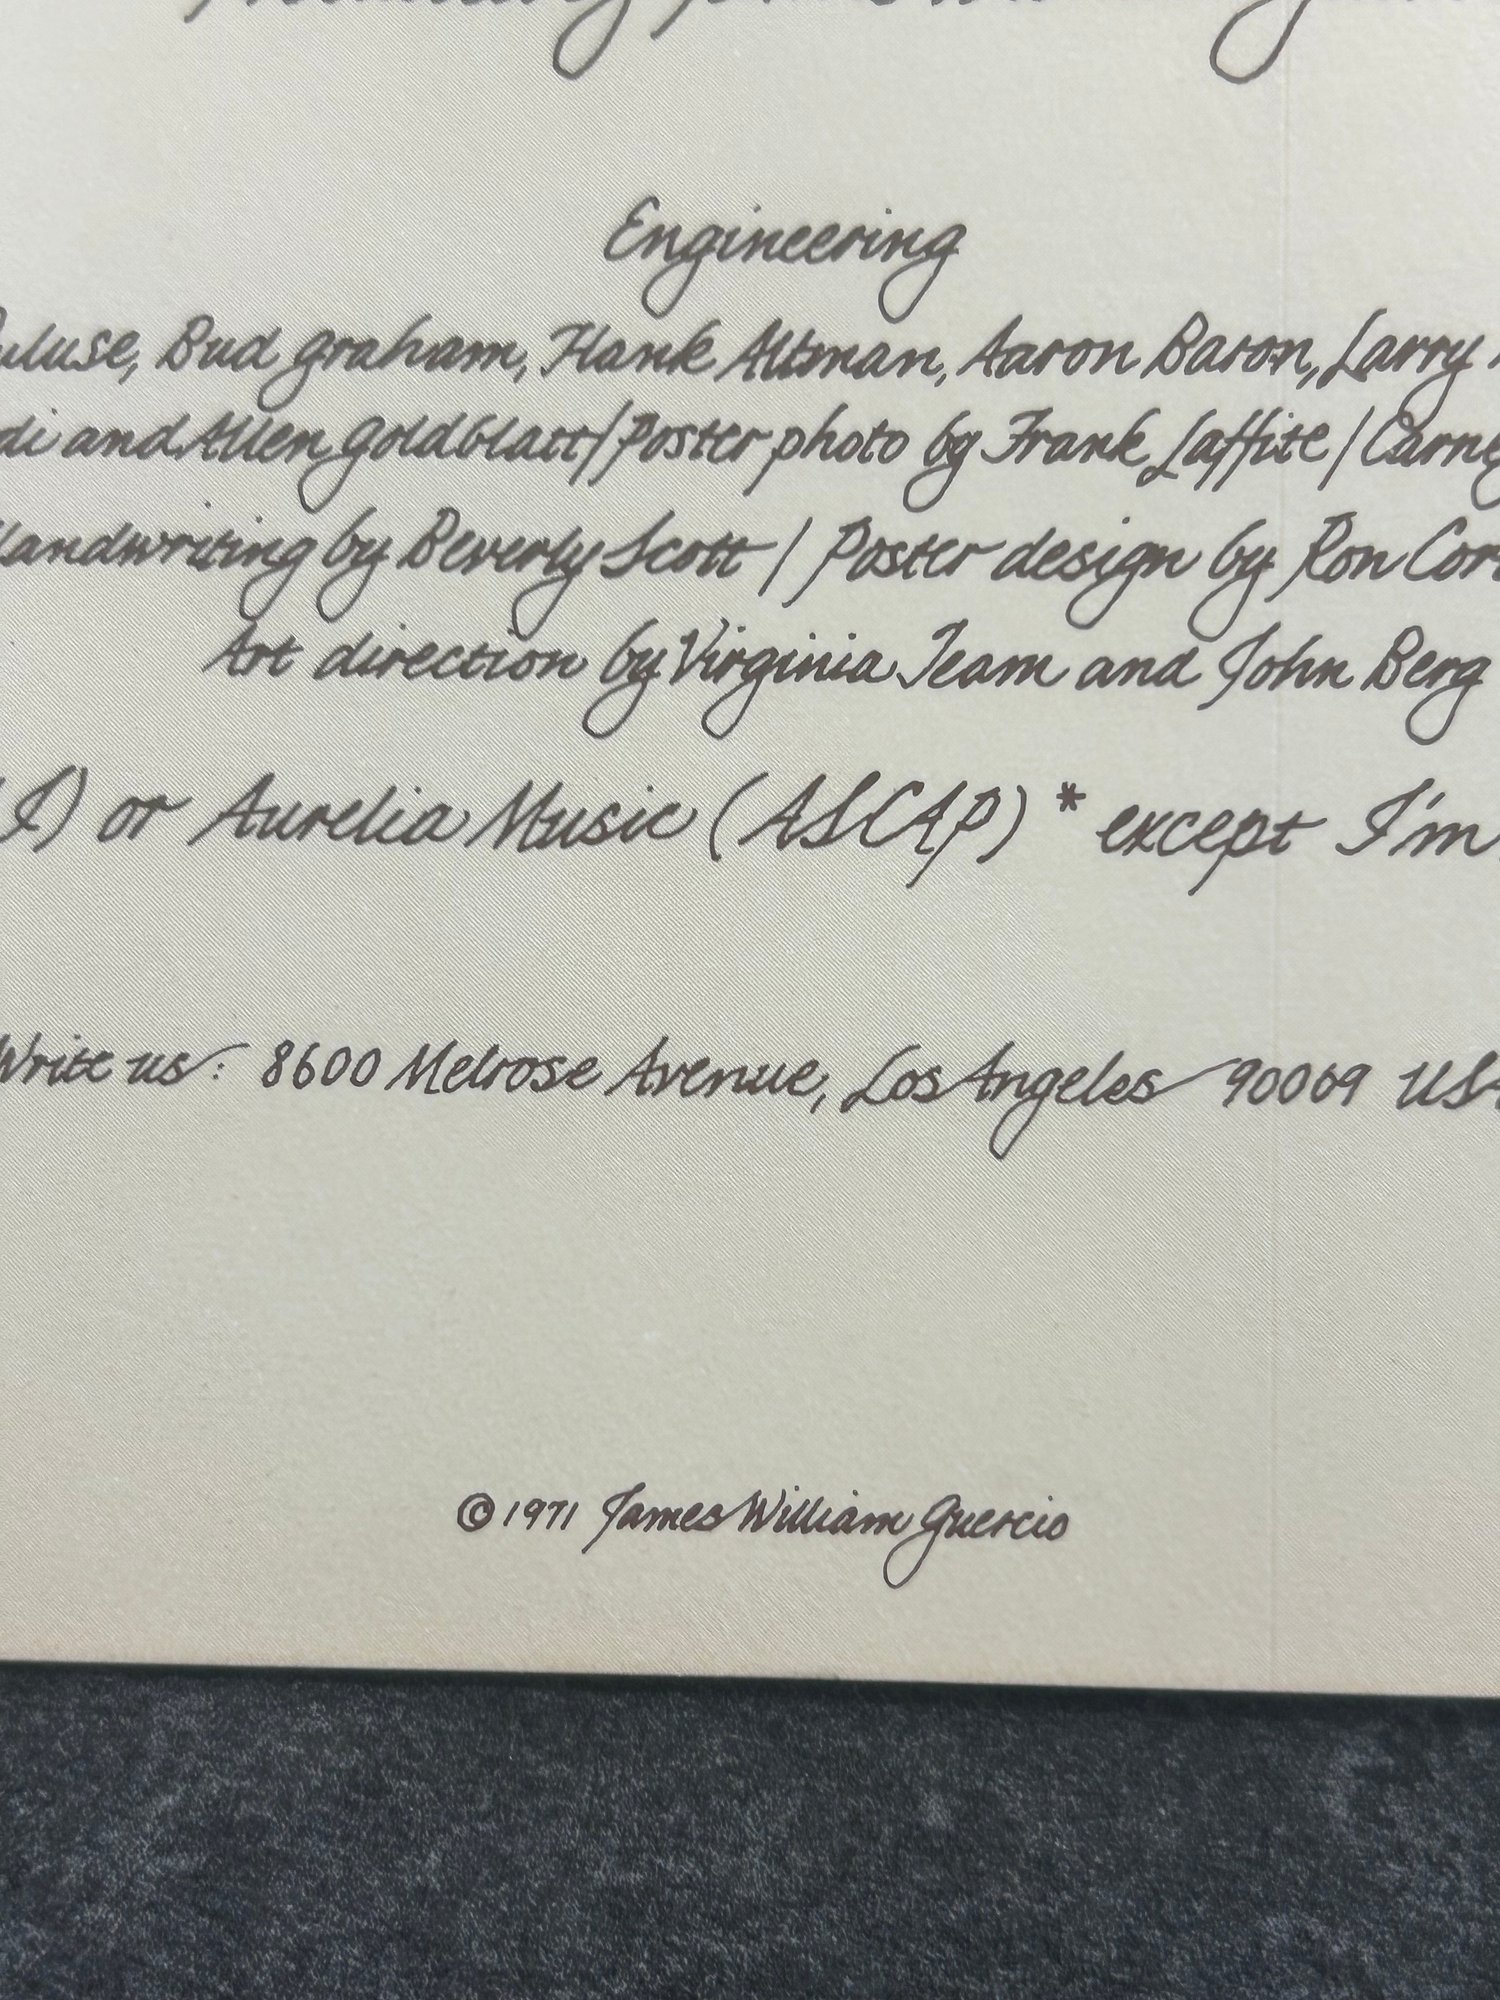 Engineering
Bud Graham, Hank Altman, Aaron Baron, Larry
and Allen Goldblatt/Poster photo by Frank Laffite/
Handwriting by Beverly Scott / Poster design by Ron
Art direction by Virginia Team and John Berg
or Aurelia Music (ASCAP) * except I'm
Write us: 8600 Melrose Avenue, Los Angeles 90069 USA
© 1971 James William Guercio